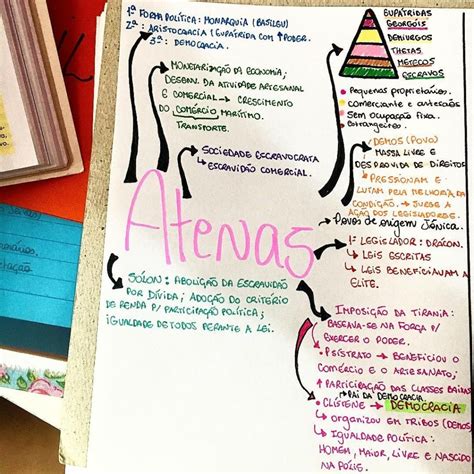 1ª FORMA POLÍTICA: MONARQUIA (BASILEU)
2ª: ARISTOCRACIA (EUPÁTRIDA COM ↑PODER.
3ª: DEMOCRACIA.
MONETARIZAÇÃO DA ECONOMIA;
DESENV. DA ATIVIDADE ARTESANAL
E COMERCIAL → CRESCIMENTO
DO COMÉRCIO MARÍTIMO.
TRANSPORTE.
SOCIEDADE ESCRAVOCRATA
↳ ESCRAVIDÃO COMERCIAL.
EUPÁTRIDAS
GEORGÓIS
DEMIURGOS
THETAS
METECOS
ESCRAVOS
• Pequenos proprietários.
comerciante e artesãos
Sem ocupação fixa.
Estrangeiros.
DEMOS (POVO)
MASSA LIVRE E
DESPROVIDA DE DIREITOS
↳ PRESSIONAM E
LUTAM PELA MELHORIA DA
CONDIÇÃO → SURGE
A AÇÃO DOS LEGISLADORES.
Povos de origem Jônica.
Atenas
1º LEGISLADOR: DRÁCON.
↳ LEIS ESCRITAS
↳ LEIS BENEFICIAVAM A
ELITE.
SÓLON: ABOLIÇÃO DA ESCRAVIDÃO
POR DÍVIDA; ADOÇÃO DO CRITÉRIO
DE RENDA P/ PARTICIPAÇÃO POLÍTICA;
IGUALDADE DE TODOS PERANTE A LEI.
IMPOSIÇÃO DA TIRANIA:
BASEAVA-SE NA FORÇA P/
EXERCER O PODER.
• PSÍSTRATO → BENEFICIOU O
COMÉRCIO E O ARTESANATO;
↑ PARTICIPAÇÃO DAS CLASSES BAIXAS
↳ PAI DA DEMOCRACIA.
• CLÍSTENE → DEMOCRACIA
↳ ORGANIZOU EM TRIBOS (DEMOS
↳ IGUALDADE POLÍTICA:
HOMEM, MAIOR, LIVRE E NASCIDO
NA PÓLIS.